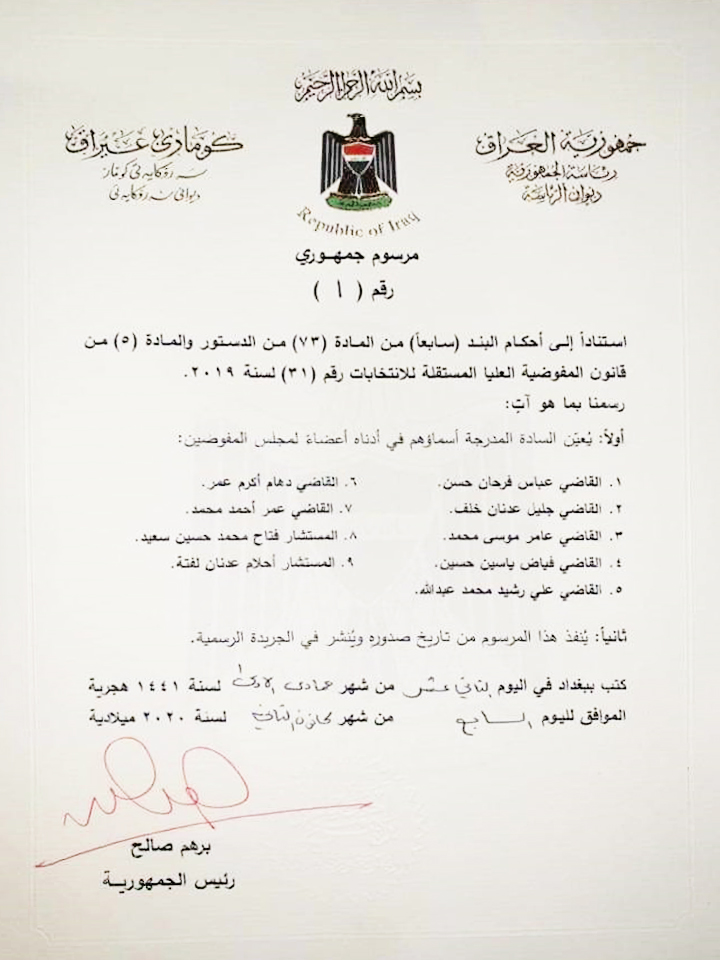 بسم الله الرحمن الرحيم
جمهورية العراق
رئاسة الجمهورية
ديوان الرئاسة
كۆماری عێراق
سەرۆکایەتی کۆمار
دیوانی سەرۆکایەتی
Republic of Iraq
مرسوم جمهوري
رقم ( ١ )
استناداً إلى أحكام البند (سابعاً) من المادة (٧٣) من الدستور والمادة (٥) من
قانون المفوضية العليا المستقلة للانتخابات رقم (٣١) لسنة ٢٠١٩.
رسمنا بما هو آتٍ:
أولاً: يُعيّن السادة المدرجة أسماؤهم في أدناه أعضاءً لمجلس المفوضين:
١. القاضي عباس فرحان حسن.
٢. القاضي جليل عدنان خلف.
٣. القاضي عامر موسى محمد.
٤. القاضي فياض ياسين حسين.
٥. القاضي علي رشيد محمد عبدالله.
٦. القاضي دهام أكرم عمر.
٧. القاضي عمر أحمد محمد.
٨. المستشار فتاح محمد حسين سعيد.
٩. المستشار أحلام عدنان لفتة.
ثانياً: يُنفذ هذا المرسوم من تاريخ صدوره ويُنشر في الجريدة الرسمية.
كتب ببغداد في اليوم الثاني عشر من شهر جمادى الاولى لسنة ١٤٤١ هجرية
الموافق لليوم السابع من شهر كانون الثاني لسنة ٢٠٢٠ ميلادية
برهم صالح
رئيس الجمهورية